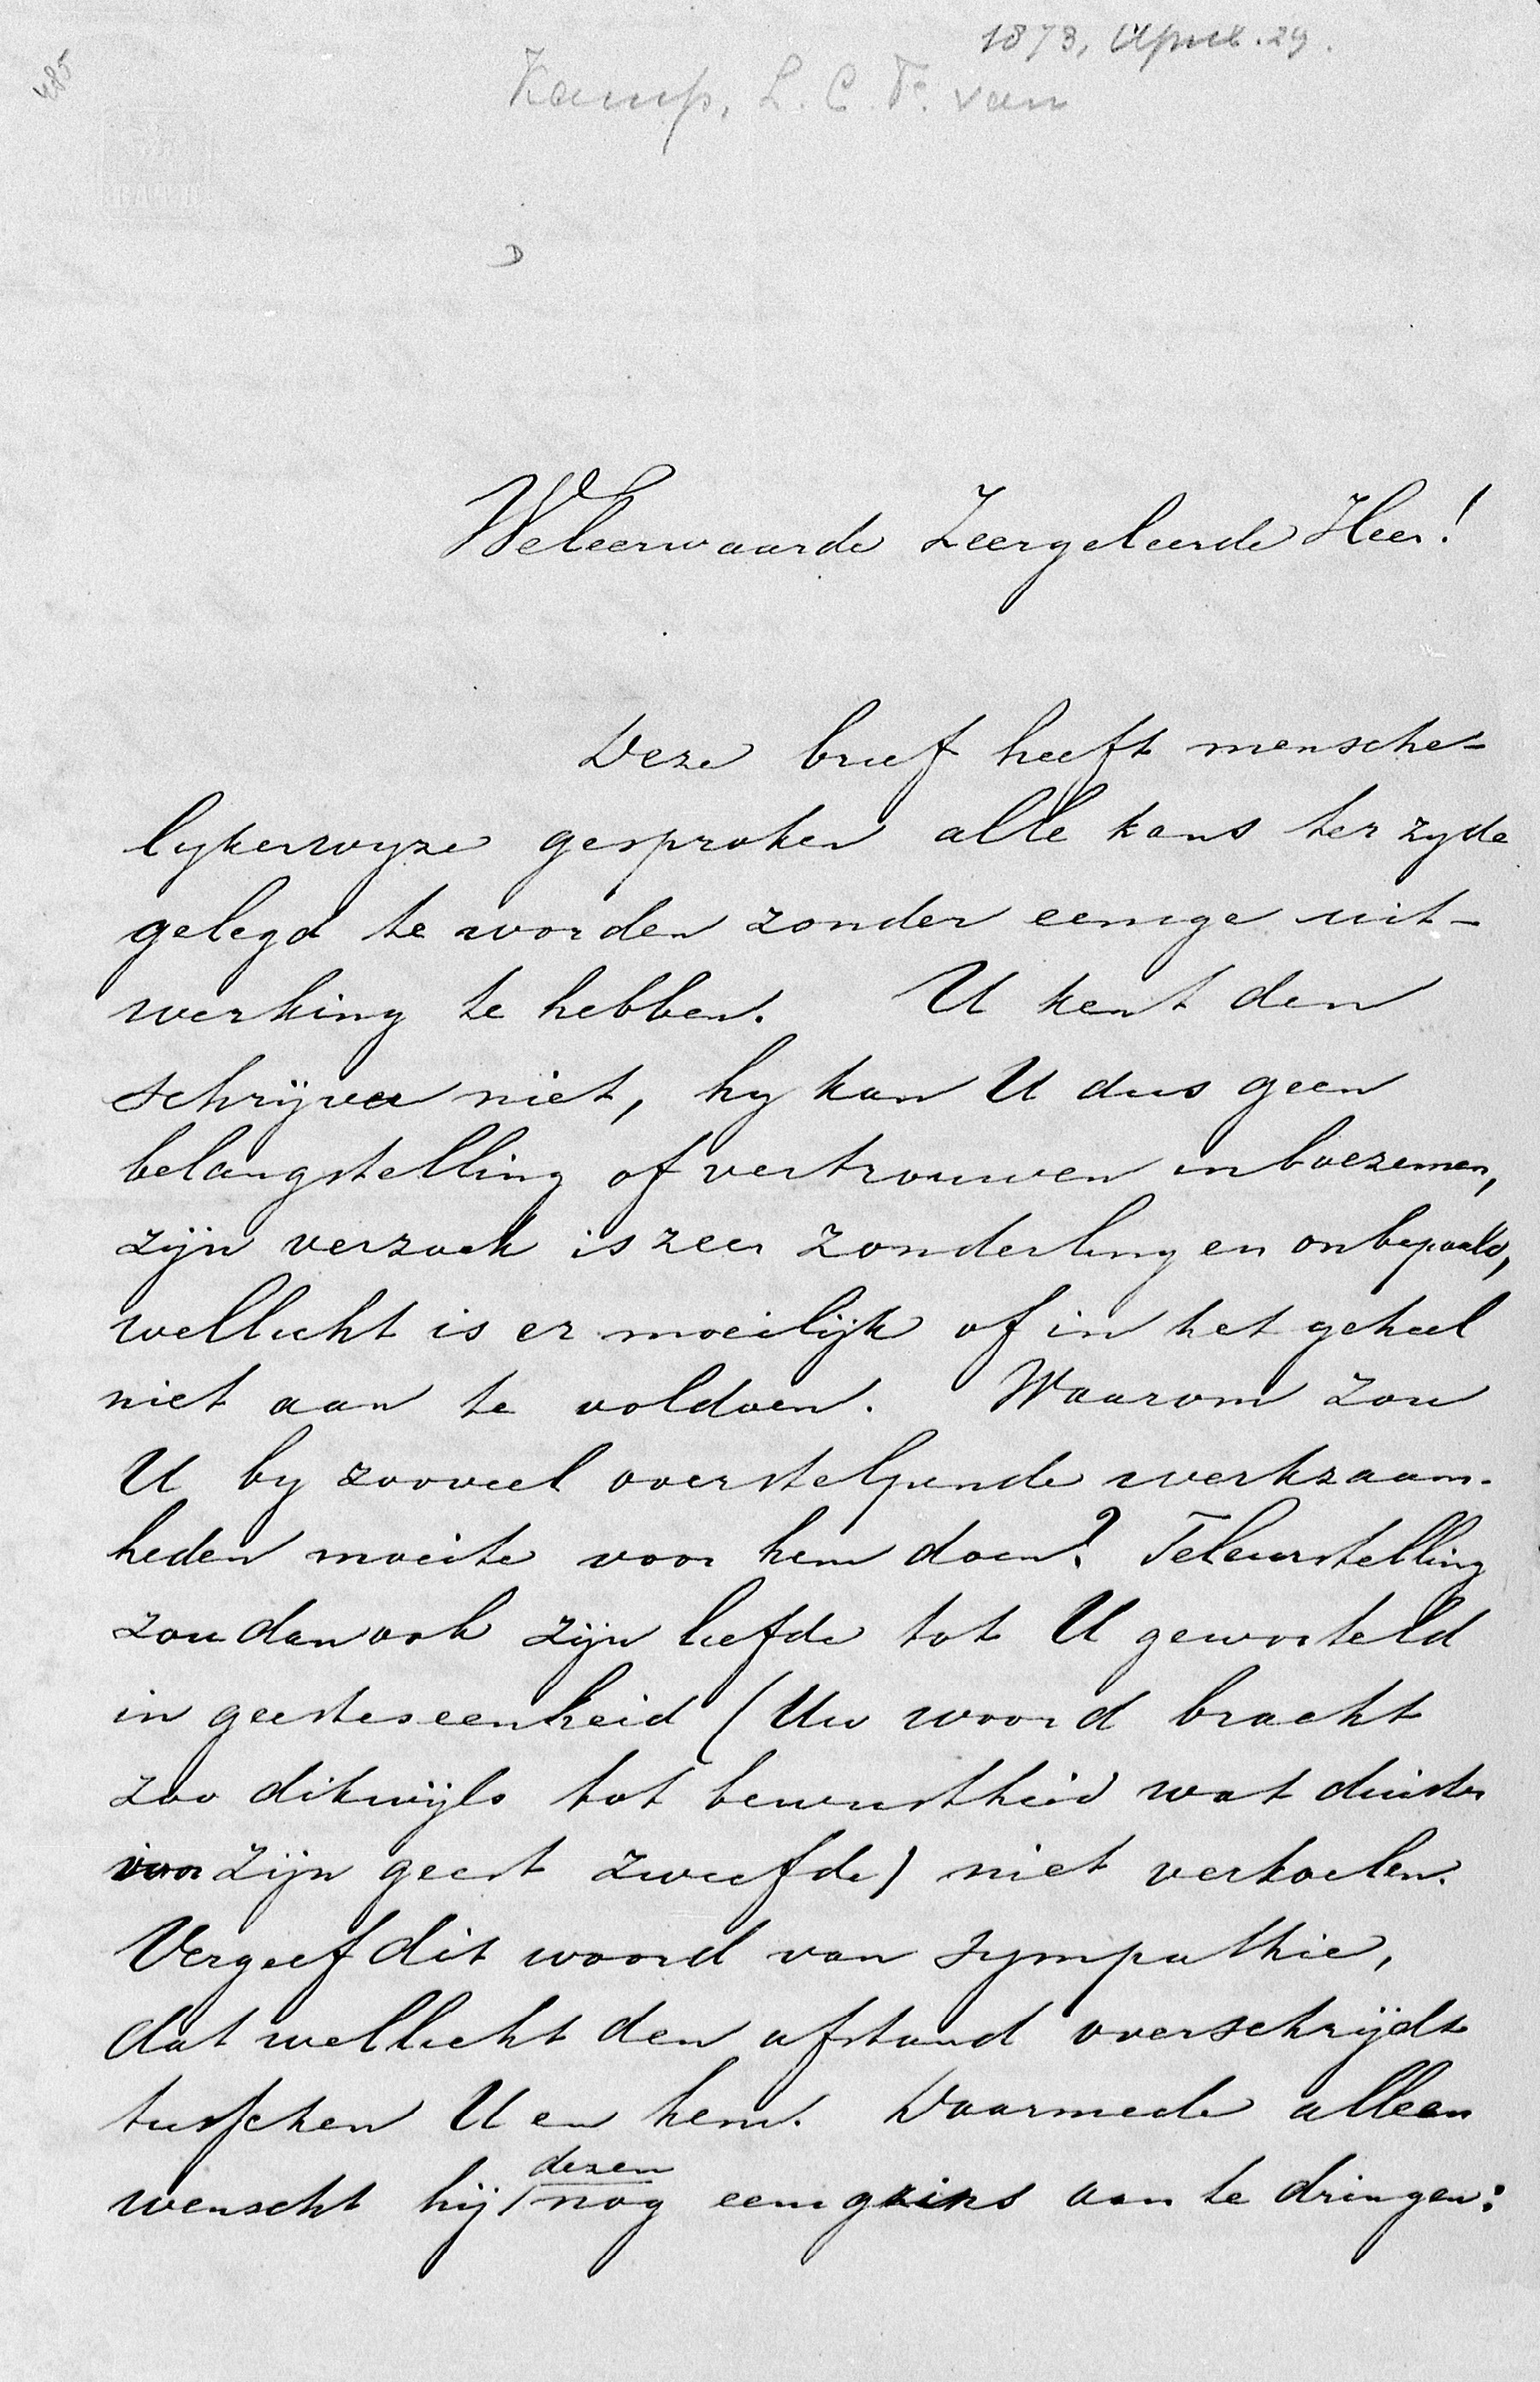 1873, April. 29.
485
Kamp, L. C. F. van
D
Weleerwaarde Zeergeleerde Heer!
Deze brief heeft mensche-
lykerwyze gesproken alle kans ter zyde
gelegd te worden zonder eenige uit-
werking te hebben. U kent den
schrijver niet, hy kan U dus geen
belangstelling of vertrouwen inboezemen,
zijn verzoek is zeer zonderling en onbepaald,
wellicht is er moeilijk of in het geheel
niet aan te voldoen. Waarom zou
U by zooveel overstelpende werkzaam-
heden moeite voor hem doen? Teleurstelling
zou dan ook zijn liefde tot U geworteld
in geesteseenheid (Uw woord bracht
zoo dikwijls tot bewustheid wat duister
voor zijn geest zweefde) niet verkoelen.
Vergeef dit woord van sympathie,
dat wellicht den afstand overschrijdt
tusschen U en hem. Daarmede alleen
dezen
wenscht hij nog eenigzins aan te dringen: